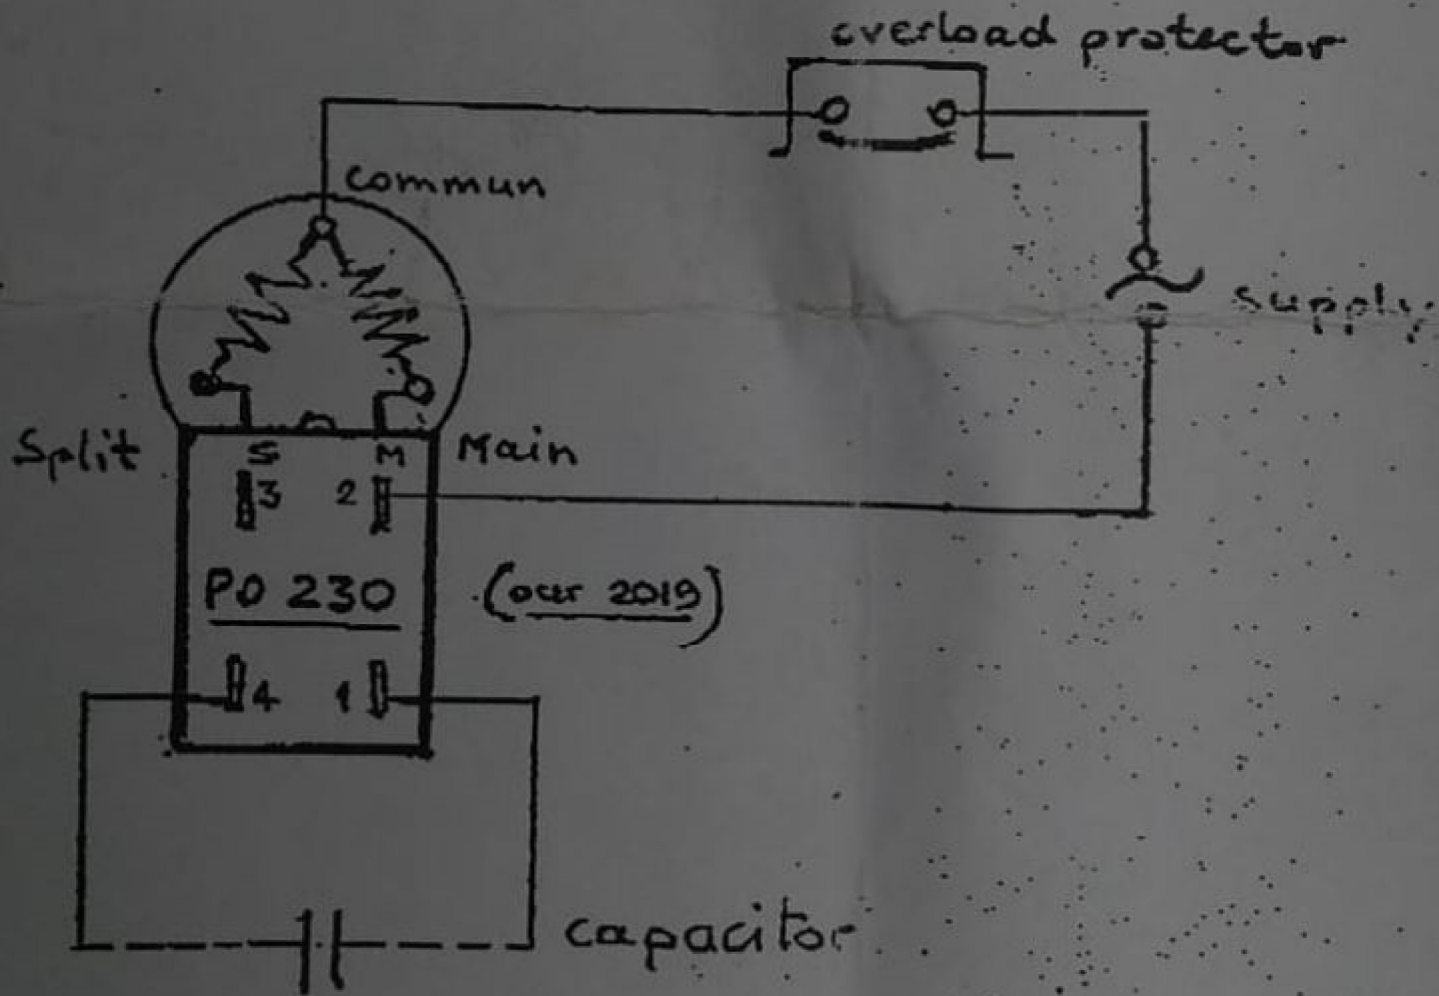 overload protector
commun
supply
Split S M Main
3 2
PO 230
4 1
capacitor